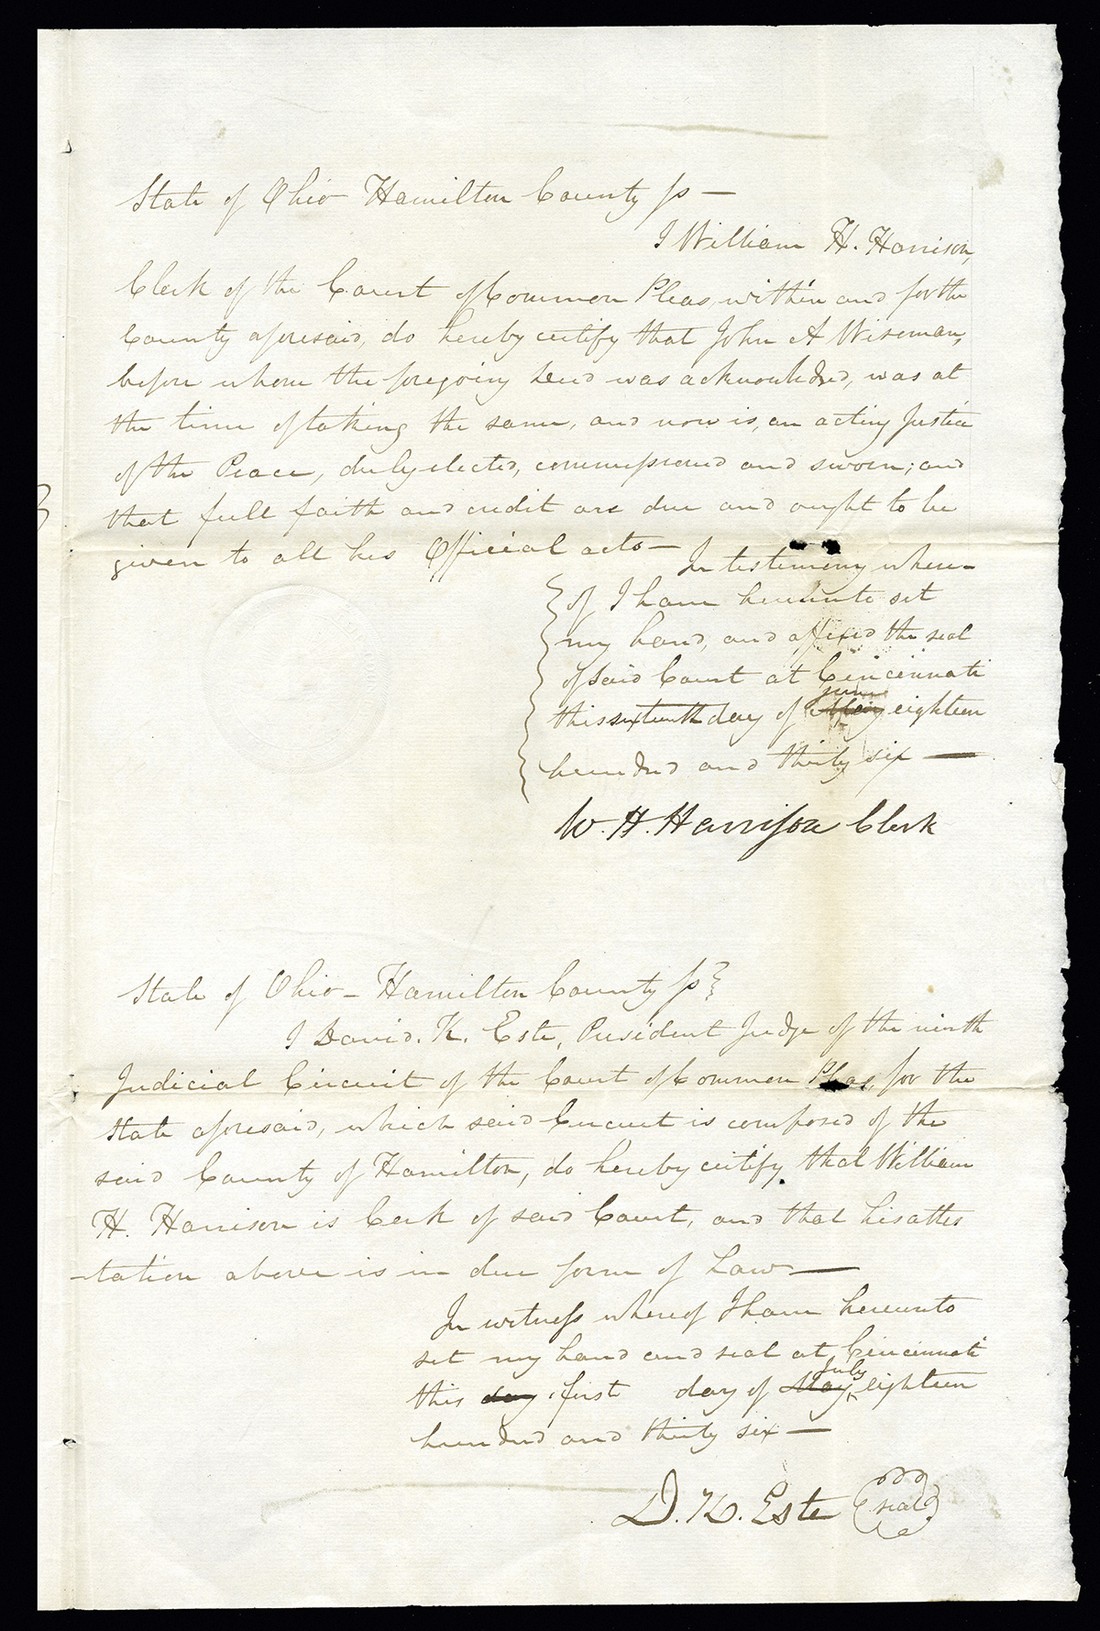 State of Ohio Hamilton County ss —
I William H. Harrison,
Clerk of the Court of Common Pleas, within and for the
County aforesaid, do hereby certify that John A Wiseman,
before whom the foregoing deed was acknowledged, was at
the time of taking the same, and now is, an acting Justice
of the Peace, duly elected, commissioned and sworn; and
that full faith and credit are due and ought to be
given to all his Official acts —
In testimony where-
of I have hereunto set
my hand, and affixed the seal
of said Court at Cincinnati
June
this sixteenth day of May eighteen
hundred and thirty six —
W. H. Harrison Clerk
State of Ohio – Hamilton County ss
I David. K. Este, President Judge of the ninth
Judicial Circuit of the Court of Common Pleas, for the
State aforesaid, which said Circuit is composed of the
said County of Hamilton, do hereby certify that William
H. Harrison is Clerk of said Court, and that his attes
-tation above is in due form of Law —
In witness whereof I have hereunto
set my hand and seal at Cincinnati
July
this day first day of May eighteen
hundred and thirty six —
D. K. Este seal